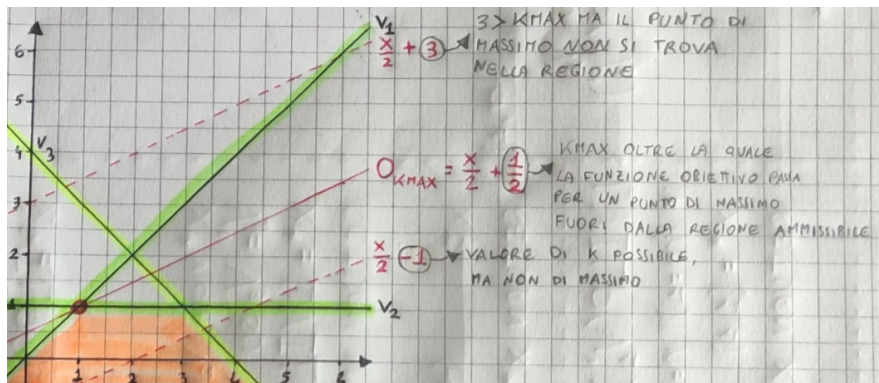 V1
3 > KMAX MA IL PUNTO DI
MASSIMO NON SI TROVA
NELLA REGIONE
x/2 + 3
6
5
4
V3
3
2
1
O KMAX = x/2 + 1/2
KMAX OLTRE LA QUALE
LA FUNZIONE OBIETTIVO PASSA
PER UN PUNTO DI MASSIMO
FUORI DALLA REGIONE AMMISSIBILE
x/2 - 1
VALORE DI K POSSIBILE,
MA NON DI MASSIMO
V2
1 2 3 4 5 6